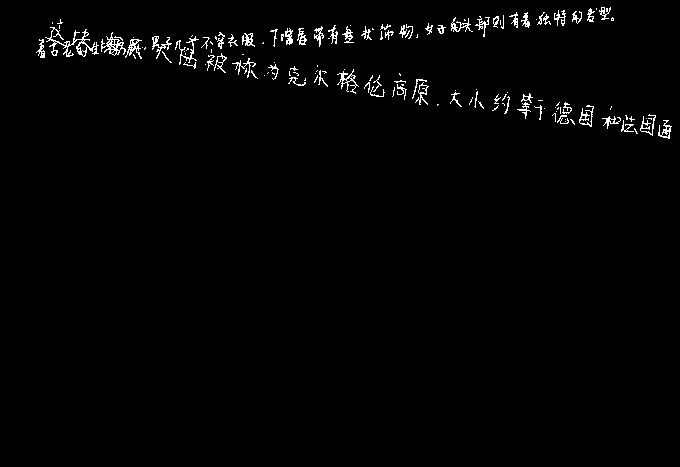 着古老的生活习惯，男子几乎不穿衣服，下嘴唇带有盘状饰物，女子的头部则有着独特的发型。
这块大陆被称为克尔格伦高原，大小约等于德国和法国面